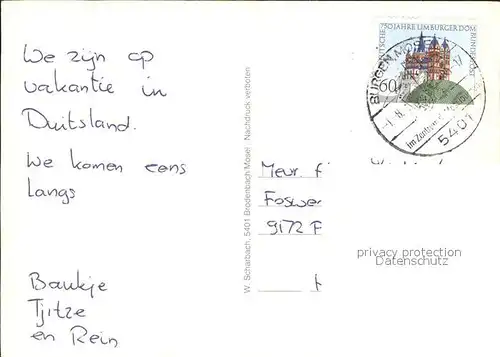 We zijn op
vakantie in
Duitsland.
We komen eens
langs
Baukje
Tjitze
en Rein
W. Scharbach, 5401 Brodenbach Mosel Nachdruck verboten
DEUTSCHE BUNDESPOST
750 JAHRE LIMBURGER DOM
60
BURGEN, MOSEL
5401
Mevr.
9172
privacy protection
Datenschutz